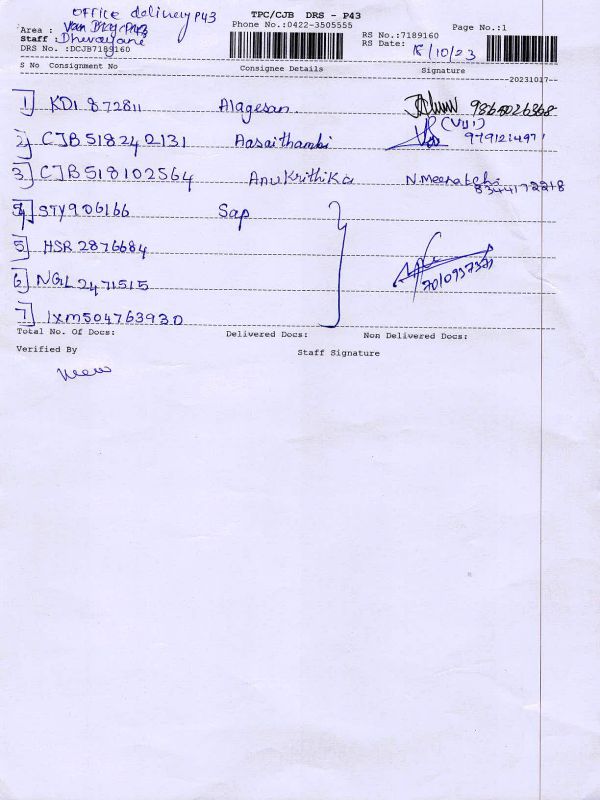 office delivery P43
TPC/CJB DRS - P43
Area : Van Bay P43
Phone No.:0422-3505555
Page No.:1
RS No.:7189160
Staff :
RS Date: 18/10/23
DRS No. :DCJB7189160
S No Consignment No Consignee Details Signature
20231017
1 KDI 872811 Alagesan
2 CJB 518240131 Aasaithambi (Viji)
3 CJB 518102564 Anukrithika N.Meenatchi
8344172218
4 STY906166 Sap
5 HSR 2876684
6 NGL 2471515
7010957371
7 IXM504763930
Total No. Of Docs: Delivered Docs: Non Delivered Docs:
Verified By
Staff Signature